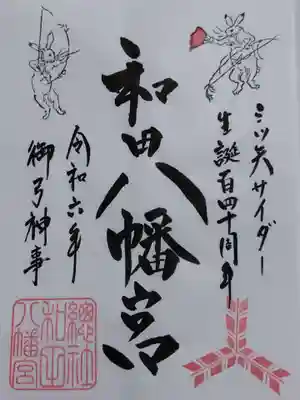 三ツ矢サイダー
生誕百四十周年
和田八幡宮
令和六年
御弓神事
總社
和田
八幡宮